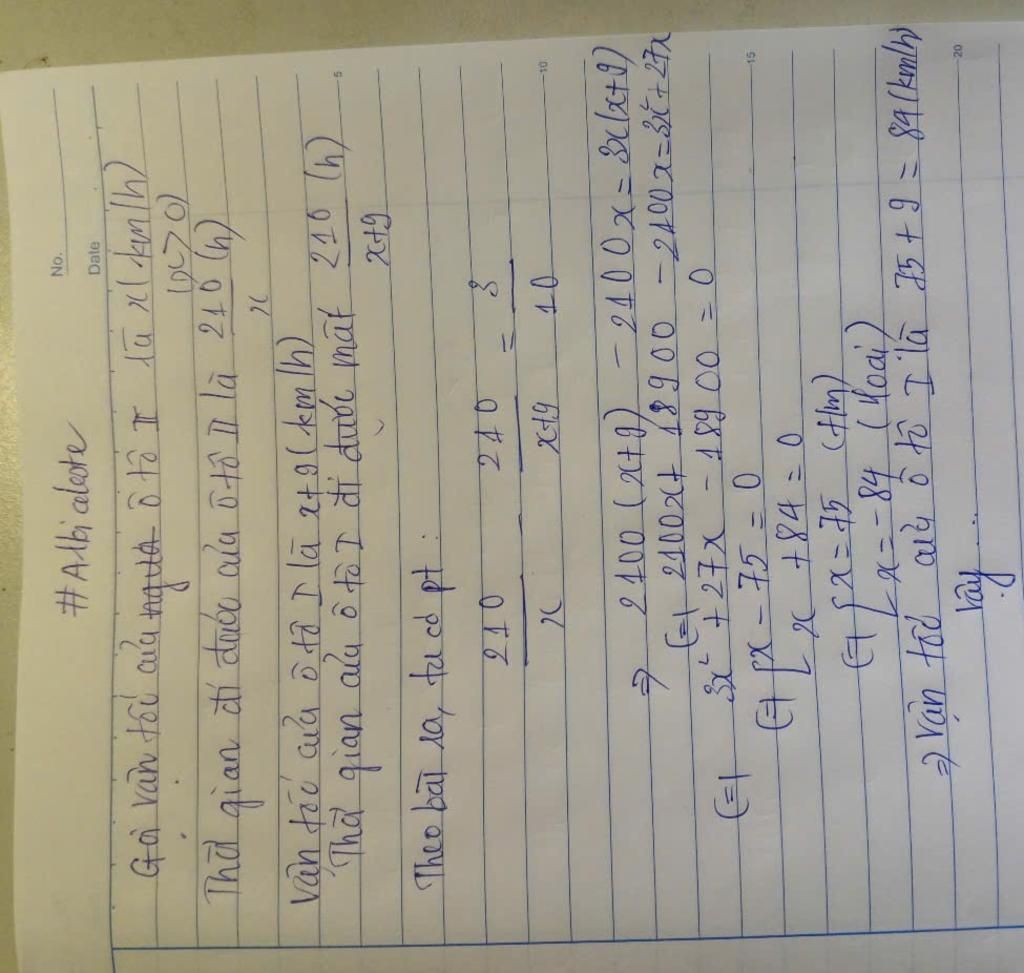 No.
Date
#Albiceleste
Gọi vận tốc của người ô tô II là x (km/h)
(x > 0)
Thời gian đi được của ô tô II là 210/x (h)
Vận tốc của ô tô I là x+9 (km/h)
5
Thời gian của ô tô I đi được mất 210/x+9 (h)
Theo bài ra, ta có pt:
210/x - 210/x+9 = 3/10
10
⇒ 2100(x+9) - 2100x = 3x(x+9)
(=) 2100x + 18900 - 2100x = 3x² + 27x
(=) 3x² + 27x - 18900 = 0
(=) [x - 75 = 0
[x + 84 = 0
15
(=) [x = 75 (t/m)
[x = -84 (loại)
⇒ Vận tốc của ô tô I là 75 + 9 = 84 (km/h)
Vậy ...
20